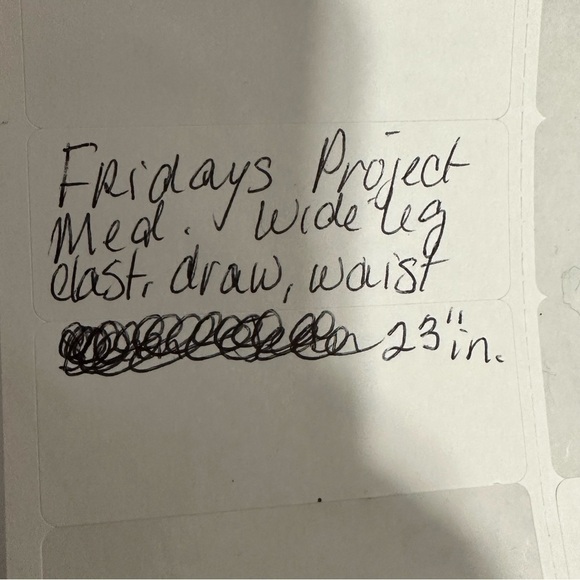 Fridays Project
Med. wide leg
elast, draw, waist
23" in.